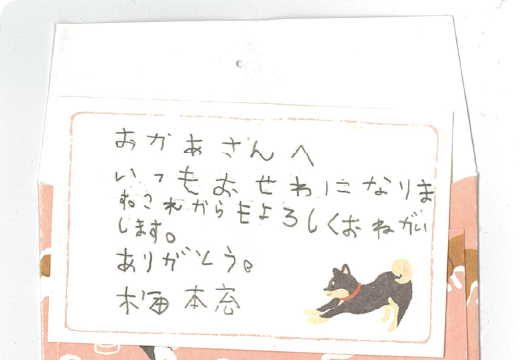 おかあさんへ
いつもおせわになりま
すこれからもよろしくおねがい
します。
ありがとう。
本